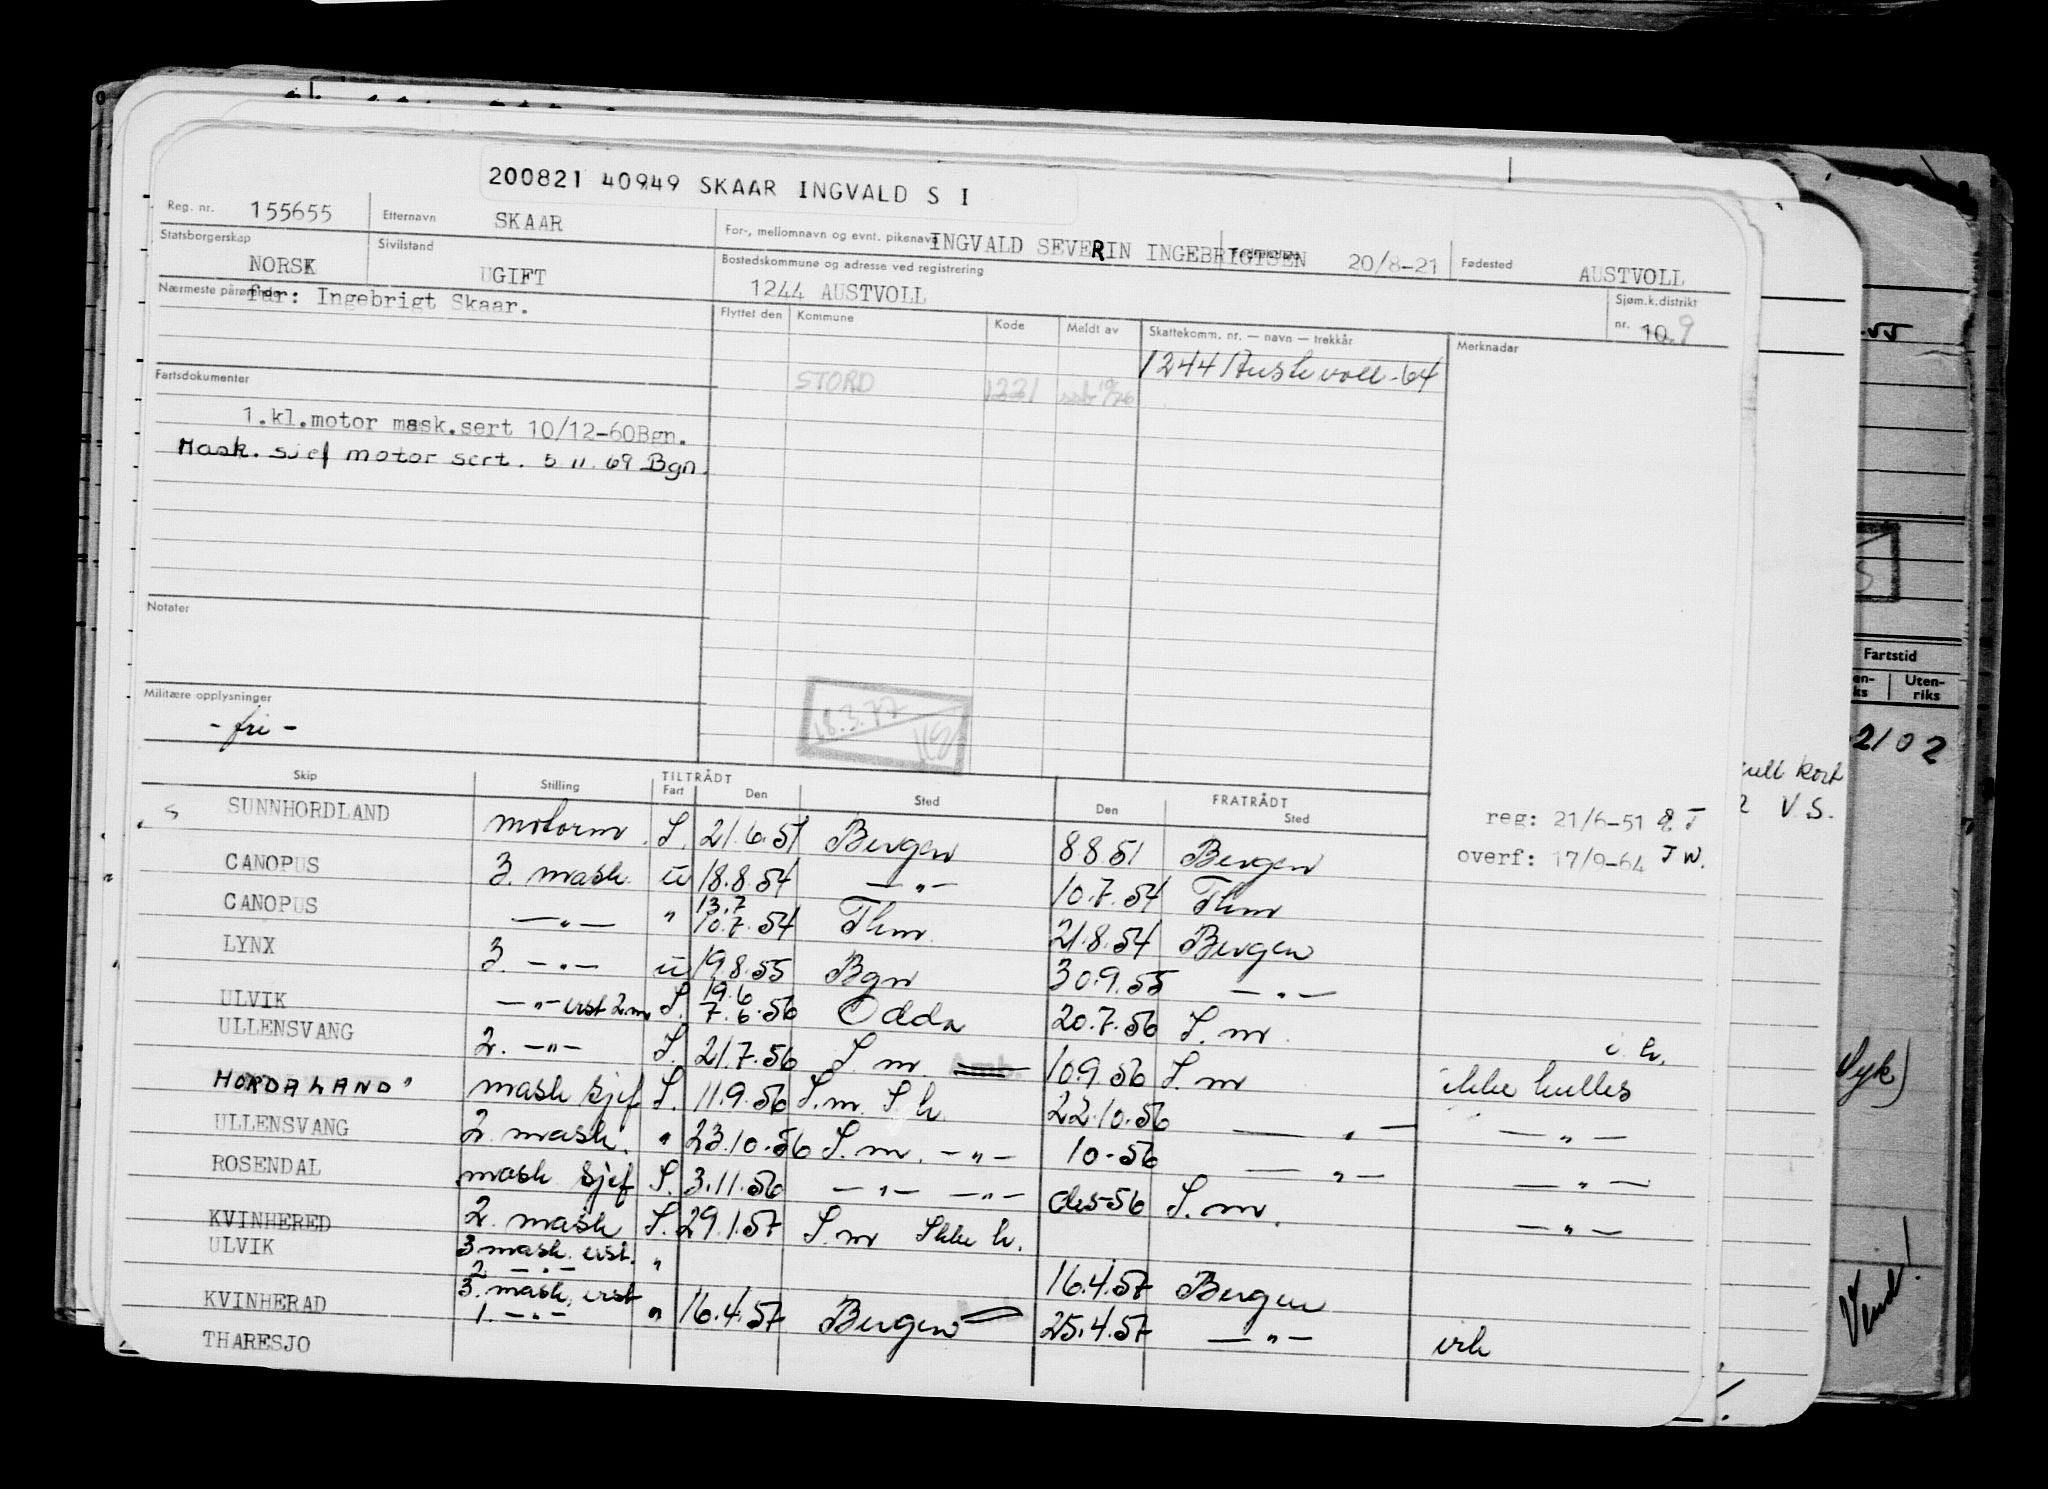 200821 40949 SKAAR INGVALD S I
Reg. nr. 155655 Etternavn SKAAR For-, mellomnavn og evnt. pikenavn INGVALD SEVERIN INGEBRIGTSEN 20/8-21 Fødested AUSTVOLL
Statsborgerskap NORSK Sivilstand UGIFT Bostedskommune og adresse ved registrering 1244 AUSTVOLL Sjøm.k.distrikt nr. 10.9
Nærmeste pårørende far: Ingebrigt Skaar.
Flyttet den Kommune Kode Meldt av Skattekomm. nr. — navn — trekkår Merknader
STORD 1221 1244 Austevoll-64
Fartsdokumenter
1.kl.motor mask.sert 10/12-60Bgn.
Mask. sjef motor sert. 5 11. 69 Bgn.
Notater
Militære opplysninger
- fri -
18.3.77
Skip Stilling TILTRÅDT Fart Den Sted FRATRÅDT Den Sted
reg: 21/6-51
overf: 17/9-64 JW.
SUNNHORDLAND motorm. S. 21.6.51 Bergen 8 8 51 Bergen
CANOPUS 3. mask. u 18.8.54 — " — 10.7.54 Thm
CANOPUS — " — " 13.7 10.7.54 Thm. 21.8.54 Bergen
LYNX 3. — " — u 19.8.55 Bgn 30.9.55 — " —
ULVIK — " — vst 2.m S. 19.6 7.6.56 Odda 20.7.56 S. m.
ULLENSVANG 2. — " — S. 21.7.56 S. m. 10.9.56 S. m i. h.
HORDALAND" mask sjef S. 11.9.56 S.m. S h. 22.10.56 — " — ikke hulles
ULLENSVANG 2. mask. " 23.10.56 S. m. — " — 10-56 — " — — " —
ROSENDAL mask sjef S. 3.11.56 — " — — " — des-56 S. m. — " —
KVINHERED 2. mask S. 29.1.57 S. m Ikke h. — " —
ULVIK 3 mask. vst. 2 — " — " 16.4.57 Bergen
KVINHERAD 3. mask, vst 1. — " — " 16.4.57 Bergen 25.4.57 — " —
THARESJO
Fartstid
Uten-riks
2102
V.S.
Syk)
Vend!